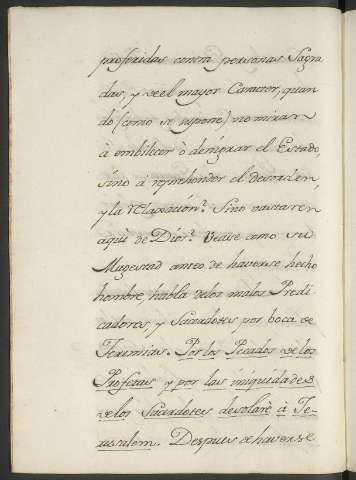 proferidas contra personas Sagra
das, y de el mayor Caracter, quan
do (como se supone) no miran
à embilecer ò denigrar el Estado,
sino à reprehender el desorden,
y la relaxación? Sino bastasen
aqui de Dios? Vease como su
Magestad antes de haverse hecho
hombre, habla de los malos Predi
cadores, y Sacerdotes por boca de
Jeremias. Por los Pecados de los
Profetas y por las iniquidades
de los Sacerdotes desolarè à Je-
rusalem. Despues de haverse